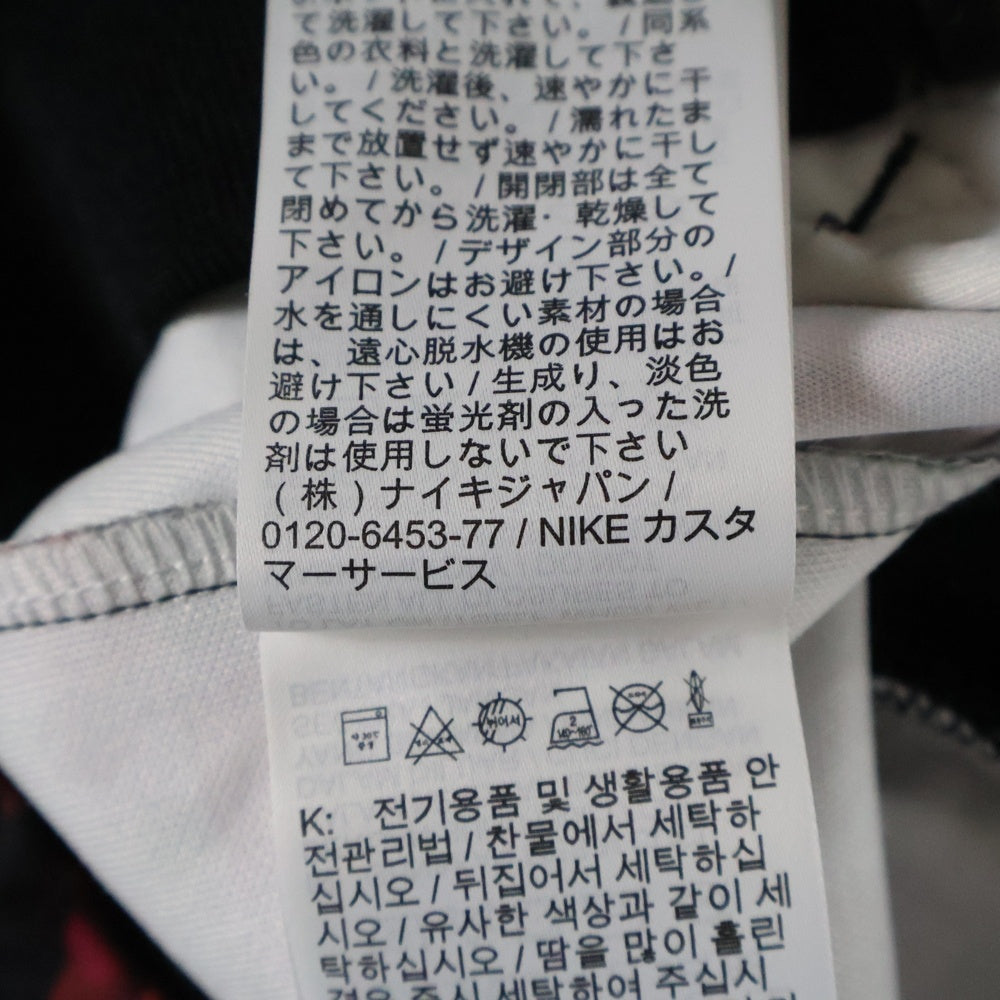 て洗濯して下さい。/同系
色の衣料と洗濯して下さ
い。/洗濯後、速やかに干
してください。/濡れたま
まで放置せず速やかに干し
て下さい。/開閉部は全て
閉めてから洗濯・乾燥して
下さい。/デザイン部分の
アイロンはお避け下さい。/
水を通しにくい素材の場合
は、遠心脱水機の使用はお
避け下さい/生成り、淡色
の場合は蛍光剤の入った洗
剤は使用しないで下さい
(株)ナイキジャパン/
0120-6453-77 / NIKE カスタ
マーサービス
K: 전기용품 및 생활용품 안
전관리법 / 찬물에서 세탁하
십시오 / 뒤집어서 세탁하십
시오 / 유사한 색상과 같이 세
탁하십시오 / 땀을 많이 흘린
경우 즉시 세탁하여 주십시